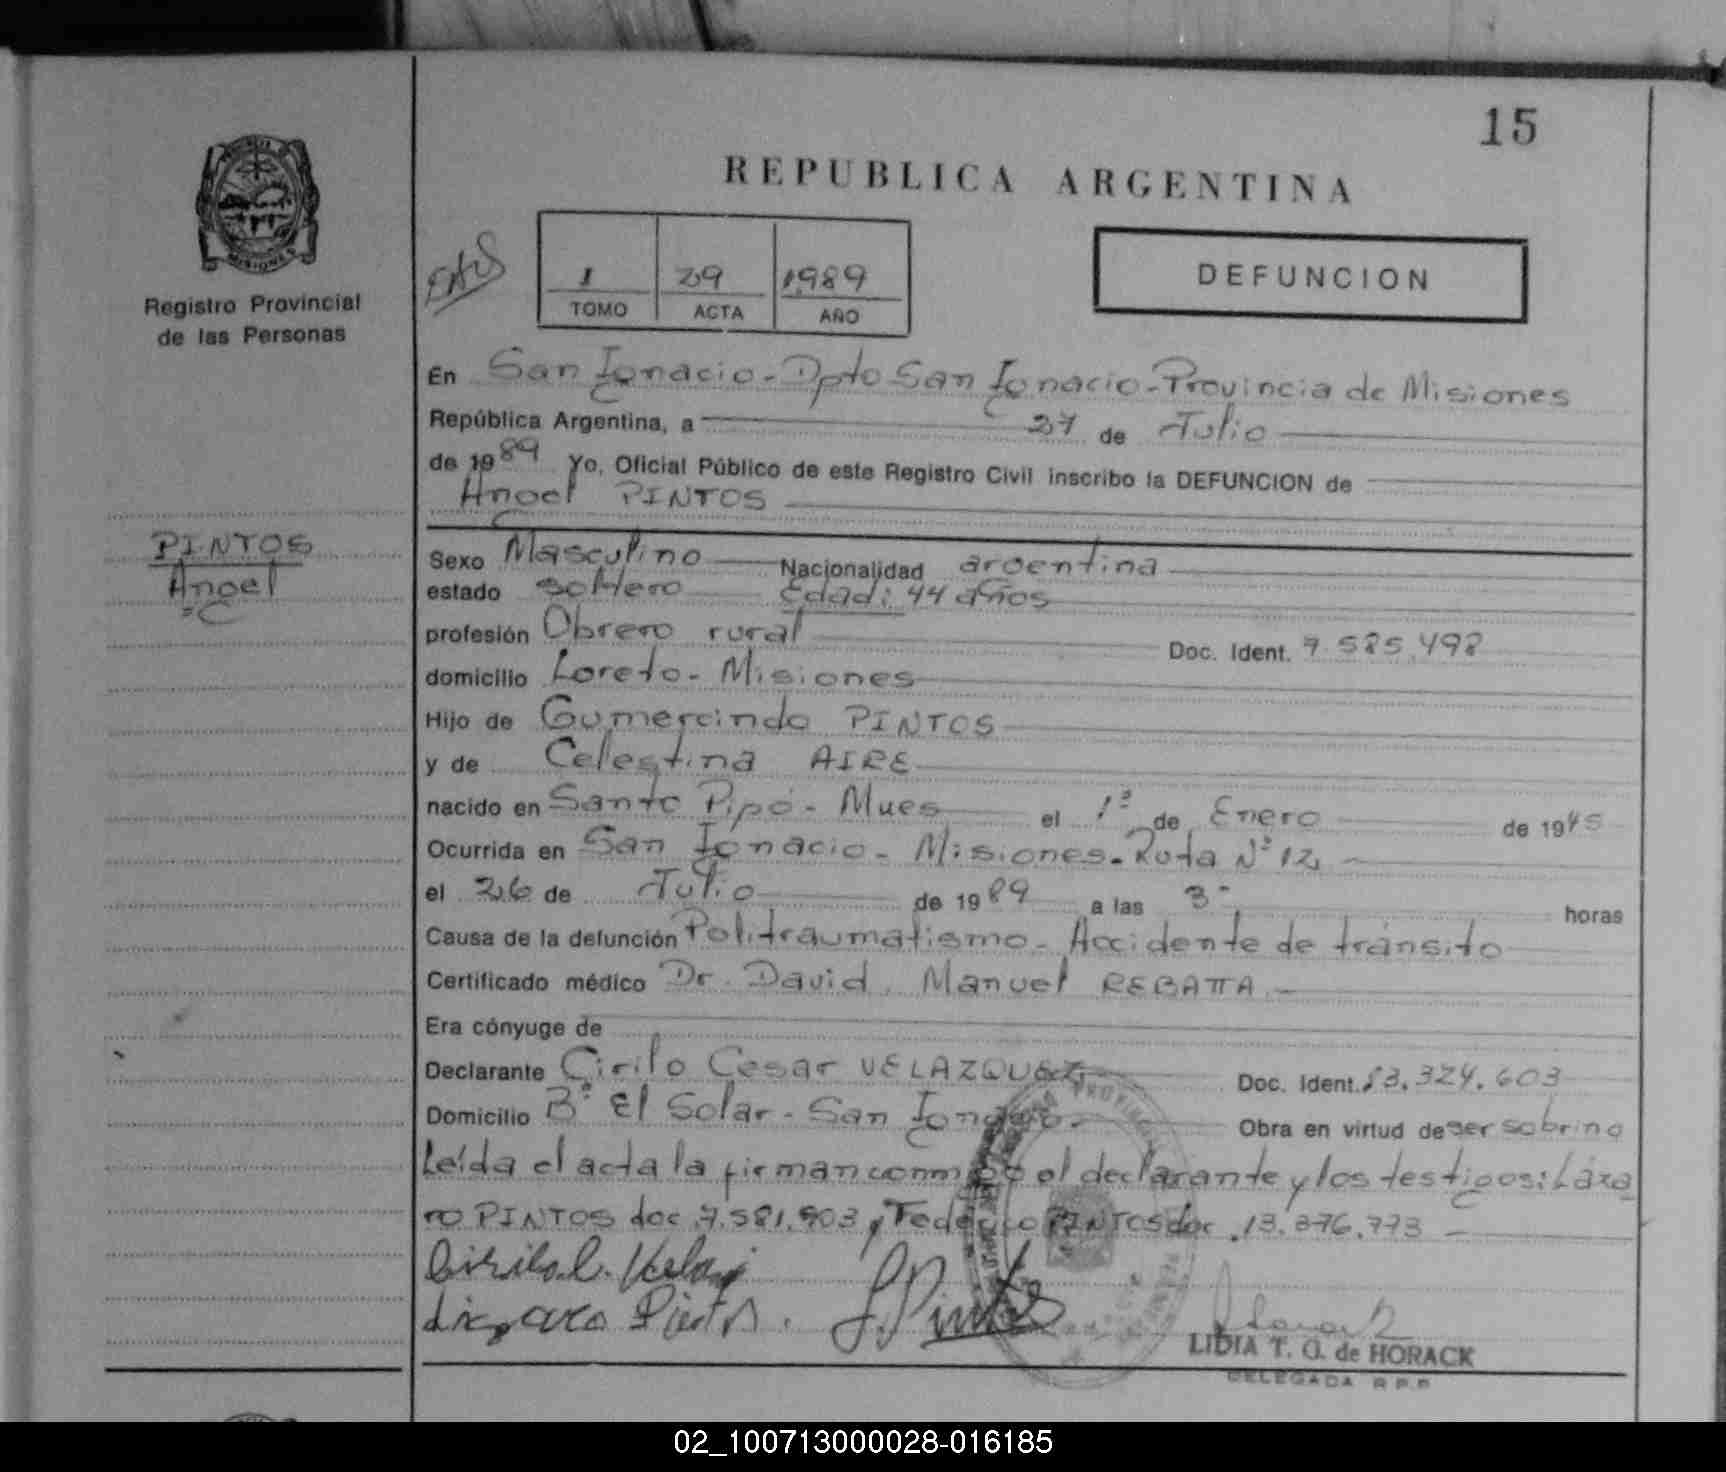 15
REPUBLICA ARGENTINA
MISIONES
Registro Provincial
de las Personas
1 29 1989
TOMO ACTA AÑO
DEFUNCION
En San Ignacio - Dpto San Ignacio - Provincia de Misiones
República Argentina, a 27 de Julio
de 1989 Yo, Oficial Público de este Registro Civil inscribo la DEFUNCION de
Angel PINTOS
PINTOS
Angel
Sexo Masculino Nacionalidad argentina
estado soltero Edad: 44 años
profesión Obrero rural Doc. Ident. 7.585.498
domicilio Loreto - Misiones
Hijo de Gumercindo PINTOS
y de Celestina AIRE
nacido en Santo Pipó - Mnes el 1º de Enero de 1945
Ocurrida en San Ignacio - Misiones - Ruta Nº 12
el 26 de Julio de 1989 a las 3 horas
Causa de la defunción Politraumatismo - Accidente de tránsito
Certificado médico Dr. David Manuel REBATTA
Era cónyuge de
Declarante Cirilo Cesar VELAZQUEZ Doc. Ident. 13.324.603
Domicilio Bº El Solar - San Ignacio Obra en virtud de ser sobrino
Leída el acta la firman conmigo el declarante y los testigos: Láza
ro PINTOS doc. 7.581.903 y Federico PINTOS doc. 13.376.773
Cirilo C. Velaz
Pintos
LIDIA T. O. de HORACK
DELEGADA R.P.P.
02_100713000028-016185